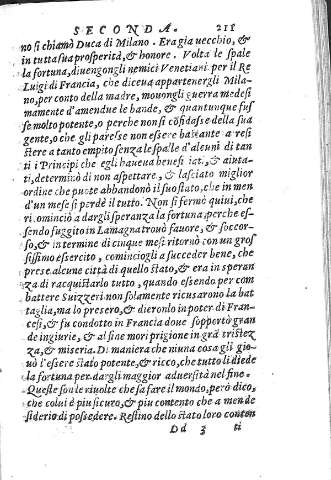 SECONDA. 211
no si chiamò Duca di Milano. Era gia uecchio, &
in tutta sua prosperità, & honore. Volta le spale
la fortuna, diuengongli nemici Venetiani per il Re
Luigi di Francia, che diceua appartenergli Mila-
no, per conto della madre, mouongli guerra medesi
mamente d'amendue le bande, & quantunque fus
se molto potente, o perche non si cõfidasse della sua
gente, o che gli paresse non essere bastante a resi
stere a tanto empito senza le spalle d'alcuni di tan
ti Principi che egli haueua benefi iati, & aiuta-
ti, determinò di non aspettare, & lasciato miglior
ordine che puote abbandonò il suo stato, che in men
d'un mese si perdè il tutto. Non si fermò quiui, che
ri ominciò a dargli speranza la fortuna, perche es-
sendo fuggito in Lamagna trouò fauore, & soccor-
so, & in termine di cinque mesi ritornò con un gros
sissimo essercito, cominciogli a succeder bene, che
prese alcune città di quello stato, & era in speran
za di racquistarlo tutto, quando essendo per com
battere Suizzeri non solamente ricusarono la bat
taglia, ma lo presero, & dieronlo in poter di Fran-
cesi, & fu condotto in Francia doue sopportò gran
de ingiurie, & al fine morì prigione in grã tristez
za, & miseria. Di maniera che niuna cosa gli gio-
uò l'essere stato potente, & ricco, che tutto li diede
la fortuna per dargli maggior aduersità nel fine.
Queste son le riuolte che fa fare il mondo, però dico,
che colui è piu sicuro, & piu contento che a men de
siderio di possedere. Restino dello stato loro conten
Dd 3 ti